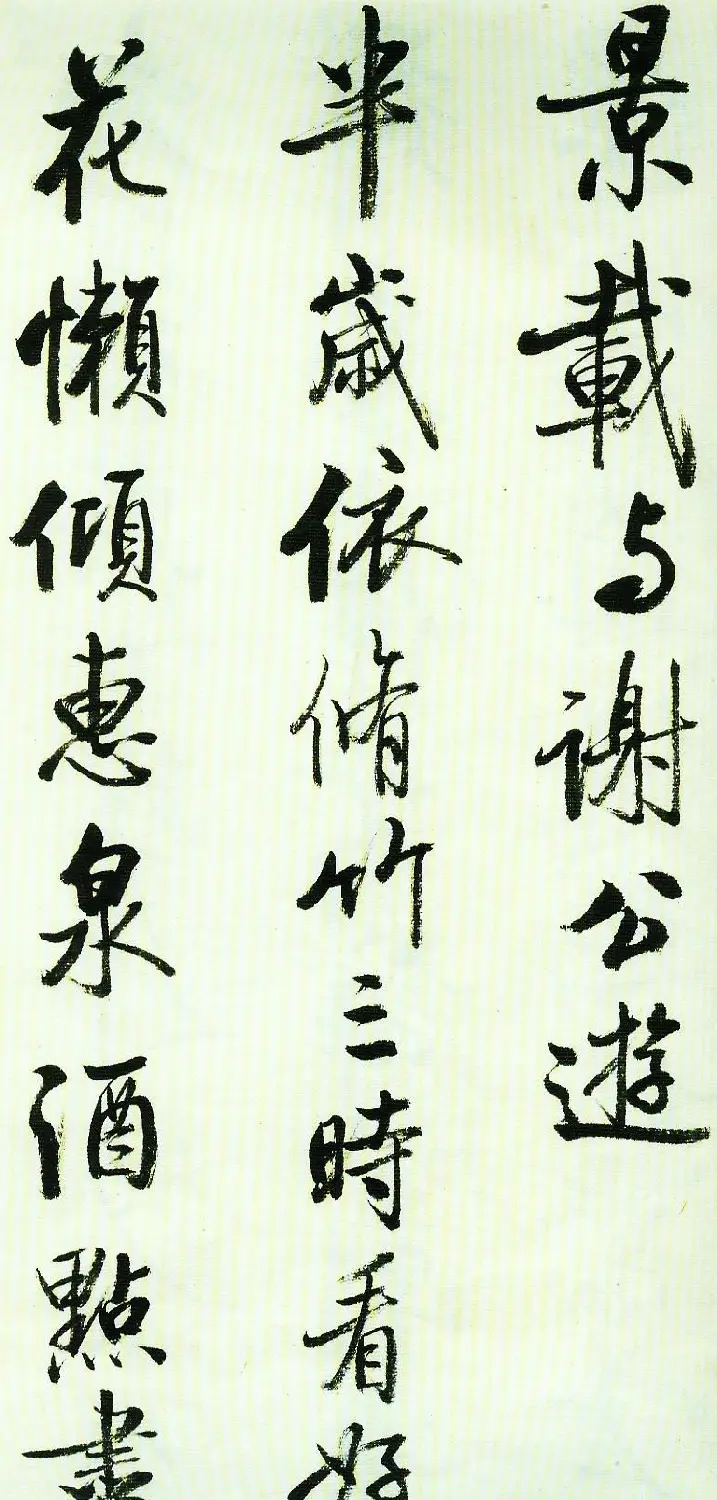 景載与谢公遊
半歲依脩竹三時看好
花懶傾惠泉酒點畫